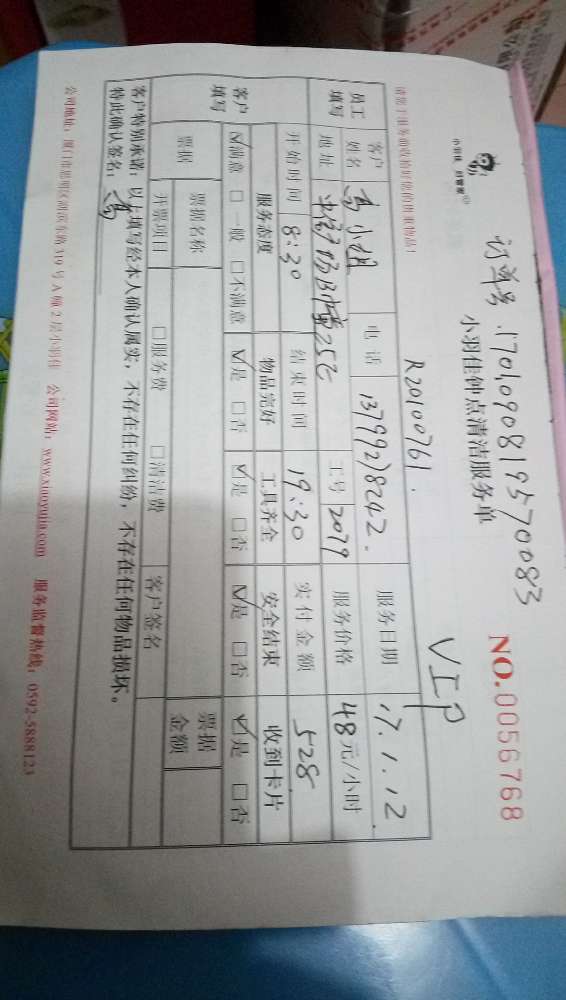 订单号:1701090819570083
NO.0056768
小羽佳钟点清洁服务单
VIP
R20100761.
员工填写 客户姓名 高小姐 电话 13799218242. 服务日期 17.1.12
地址 25C 工号 2079 服务价格 48元/小时
客户填写 开始时间 8:30 结束时间 19:30 实付金额 528
服务态度 物品完好 工具齐全 安全结束 收到卡片
☑满意 □一般 □不满意 ☑是 □否 ☑是 □否 ☑是 □否 ☑是 □否
票据 票据名称 票据金额
开票项目 □服务费 □清洁费 客户签名
客户特别承诺:以上填写经本人确认属实,不存在任何纠纷,不存在任何物品损坏。
特此确认签名:高
公司地址:厦门市思明区湖滨东路319号A幢2层小羽佳 公司网站:www.xiaoyujia.com 服务监督热线:0592-5888123